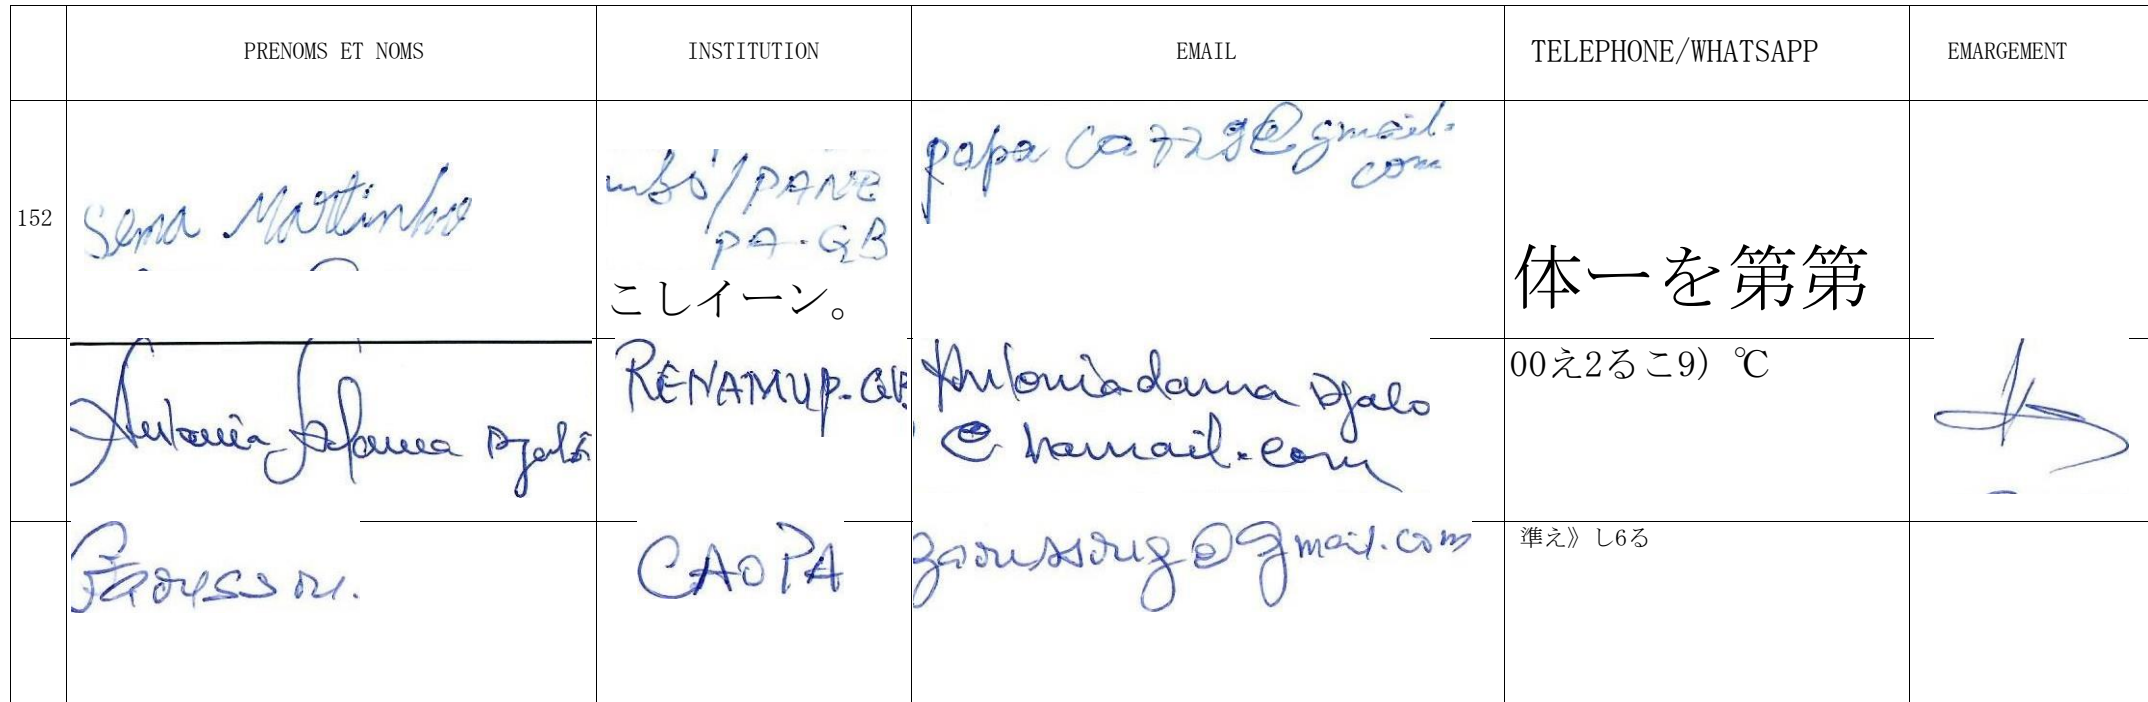 PRENOMS ET NOMS INSTITUTION EMAIL TELEPHONE/WHATSAPP EMARGEMENT
152 Sema Martinho
PANE
PA-GB
papa ca7729@gmail.
com
こしイーン。
体一を第第
Antonia Djaló
RENAMUP-GB
Antoniadama Djalo
@ hamail.com
00え2るこ9) ℃
CAOPA
@gmail.com
準え》し6る